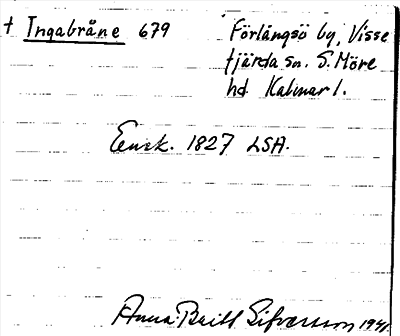 † Ingabråne 679 Förlångsö by, Visse
fjärda sn. S. Möre
hd Kalmar l.
Ensk. 1827 LSA.
Anna-Britt Sifversson